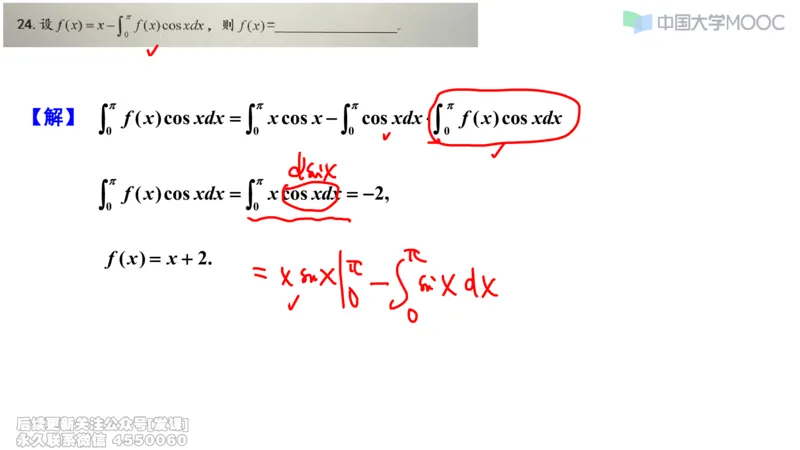 24. 设 f(x) = x − ∫₀^π f(x)cosxdx，则 f(x)=____________。
中国大学MOOC
【解】 ∫₀^π f(x)cos xdx = ∫₀^π x cos x − ∫₀^π cos xdx · ∫₀^π f(x)cos xdx
dsinx
∫₀^π f(x)cos xdx = ∫₀^π x cos xdx = −2,
f(x) = x + 2.
= x sinx |₀^π − ∫₀^π sinx dx
后续更新关注公众号[发课]
永久联系微信 4550060